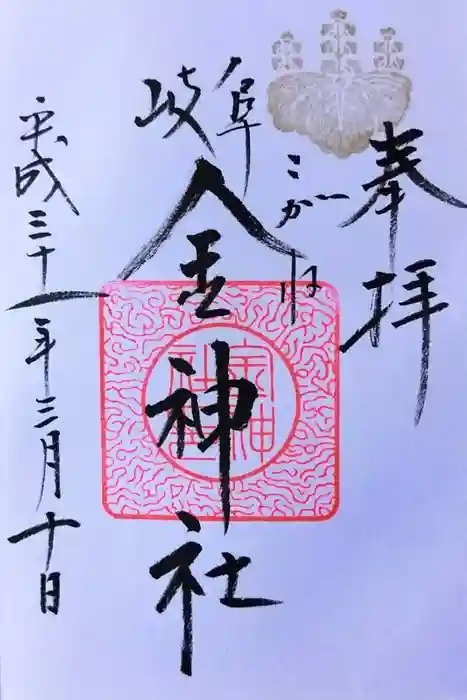 奉拝
こがね
岐阜
金神社
平成三十一年三月十日